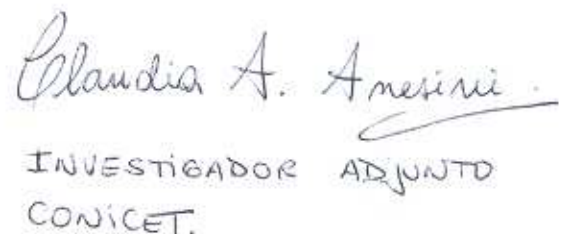 Claudia A. Anesini.
INVESTIGADOR ADJUNTO
CONICET.